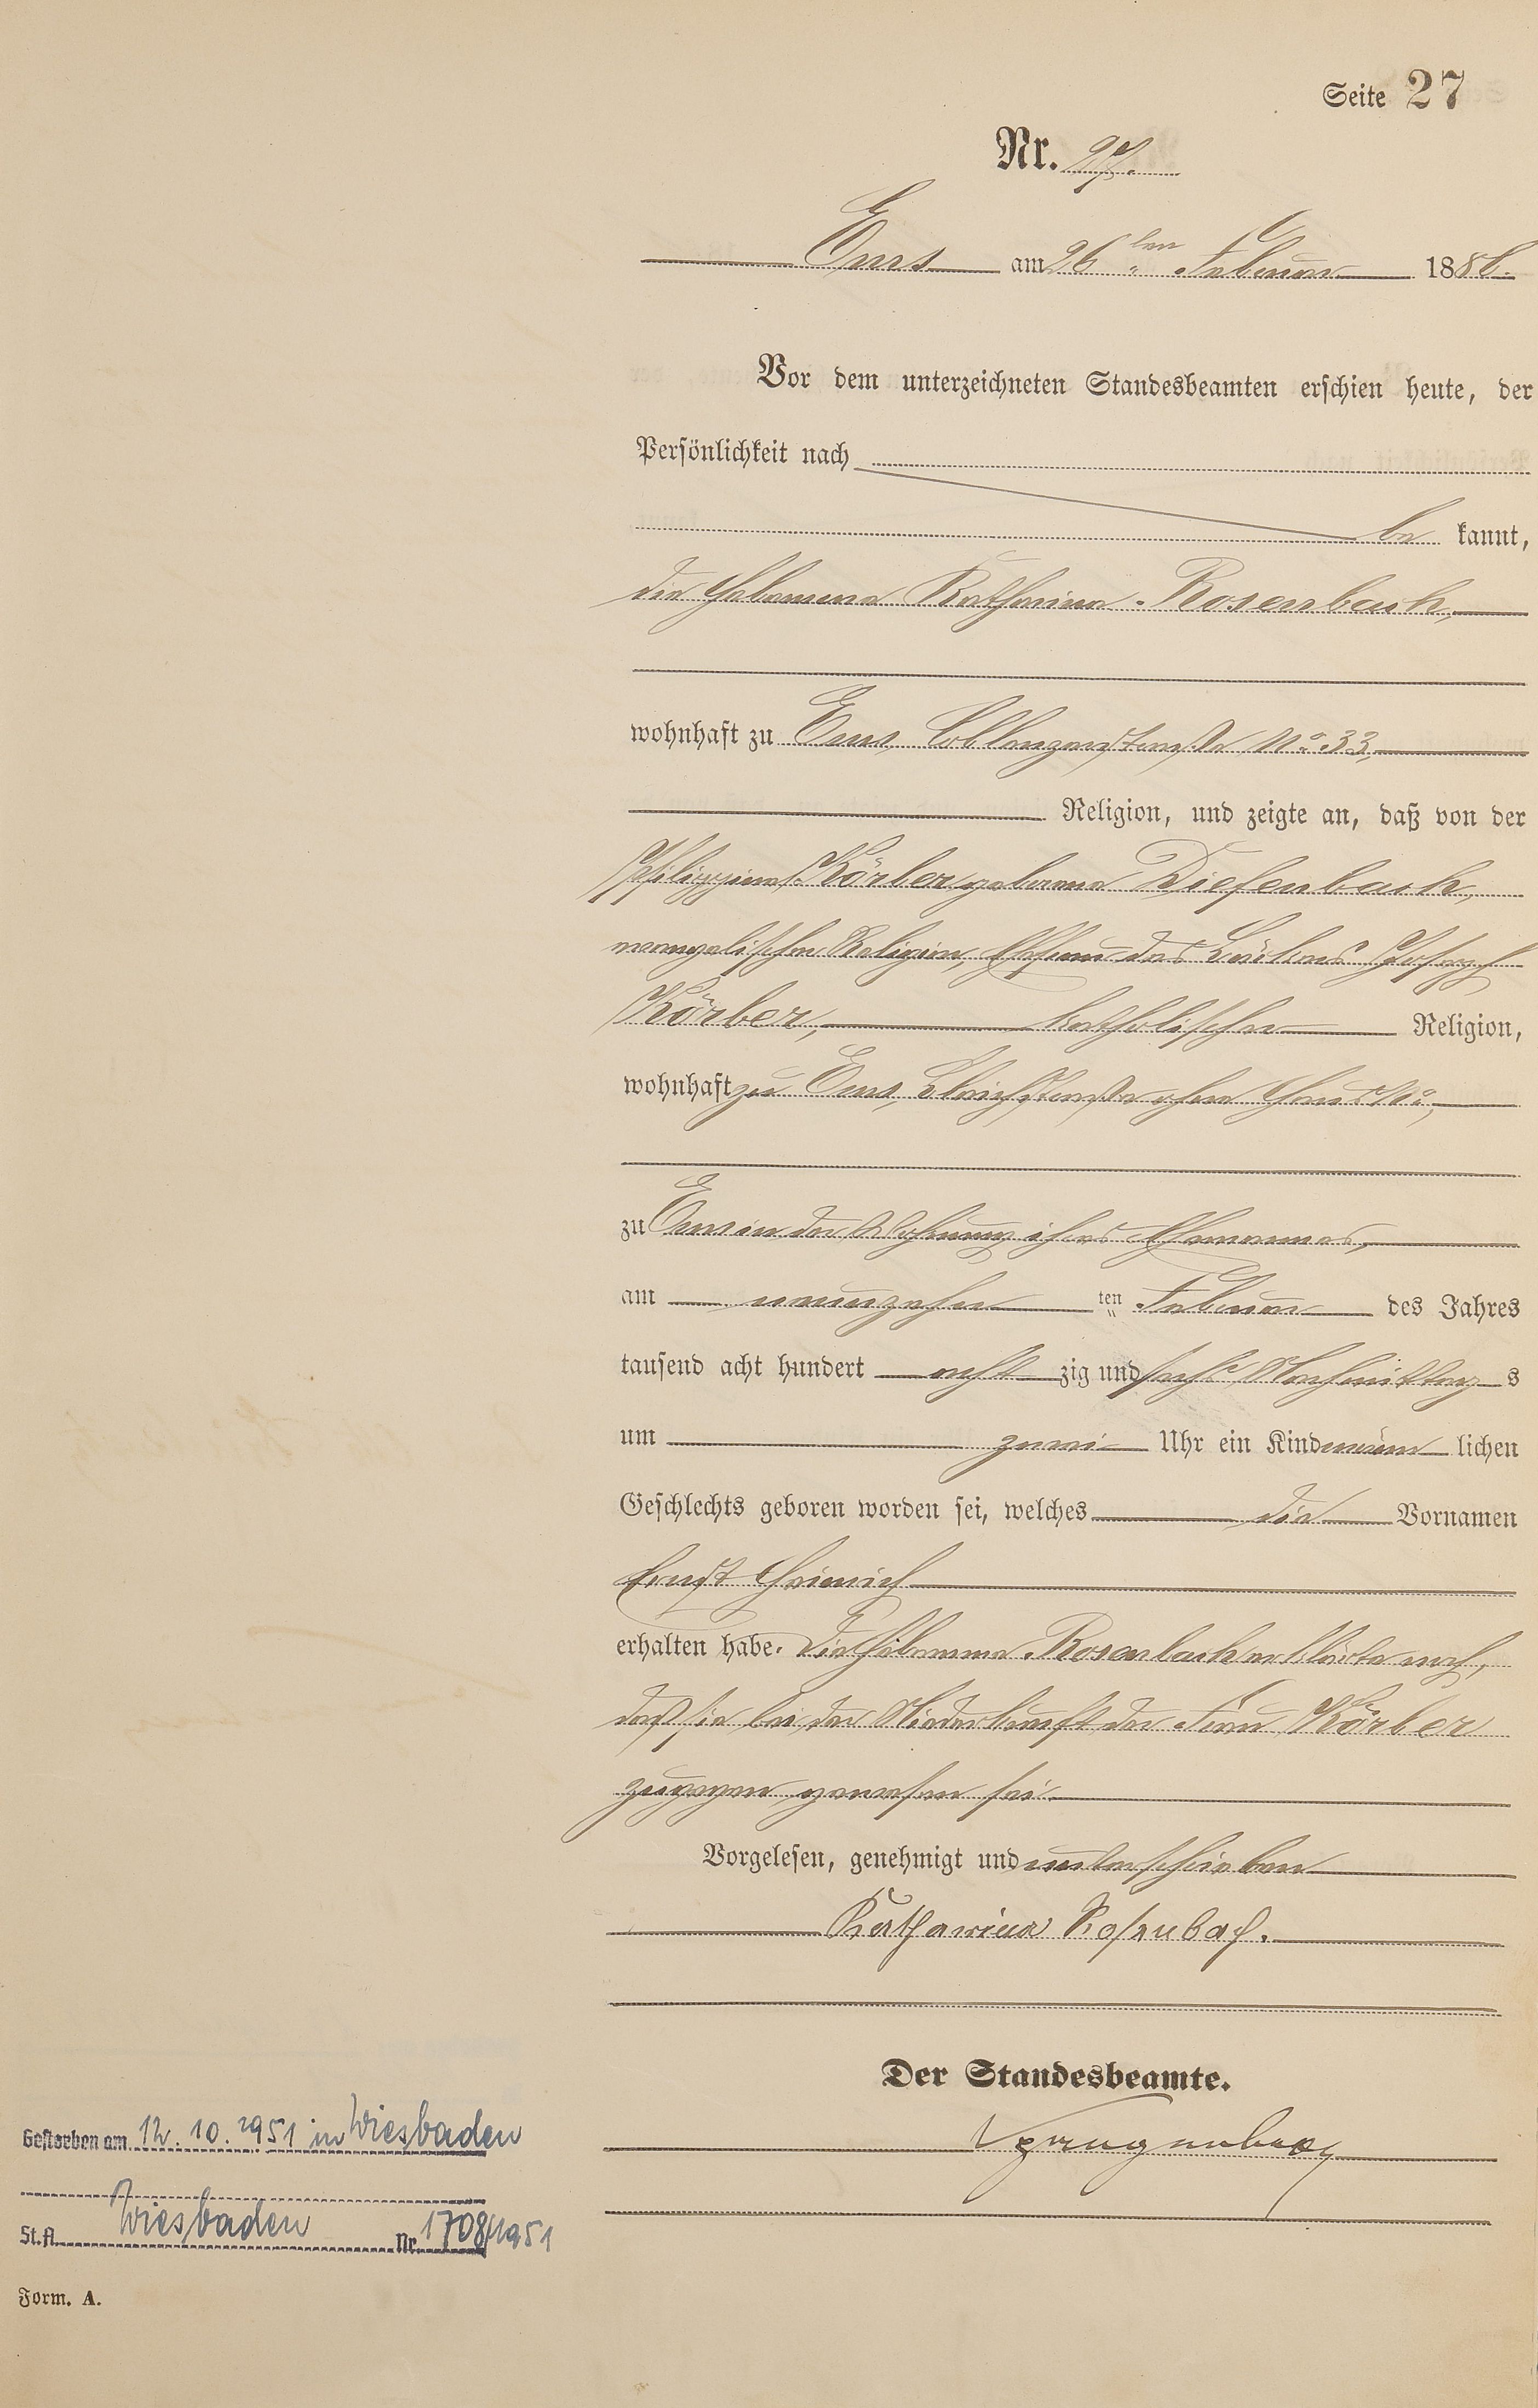 Seite 27
Nr. 27.
Ems am 26ten Februar 1886.
Vor dem unterzeichneten Standesbeamten erschien heute, der
Persönlichkeit nach
be kannt,
die Hebamme Katharina Rosenbach,
wohnhaft zu Ems, Coblenzerstraße No. 33,
Religion, und zeigte an, daß von der
Philippine Körber geborene Diefenbach,
evangelischer Religion, Ehefrau des Bäckers Joseph
Körber, katholischer Religion,
wohnhaft zu Ems, Bleichstraße ohne Haus No.,
zu Ems in der Wohnung ihres Ehemannes,
am neunzehn ten Februar des Jahres
tausend acht hundert acht zig und sechs Nachmittag s
um zwei Uhr ein Kind männ lichen
Geschlechts geboren worden sei, welches die Vornamen
Ernst Heinrich
erhalten habe. Die Hebamme Rosenbach erklärte noch,
daß sie bei der Niederkunft der Frau Körber
zugegen gewesen sei.
Vorgelesen, genehmigt und unterschrieben
Katharina Rosenbach.
Der Standesbeamte.
Gestorben am 12.10.1951 in Wiesbaden
St.A. Wiesbaden Nr. 1708/1951
Form. A.